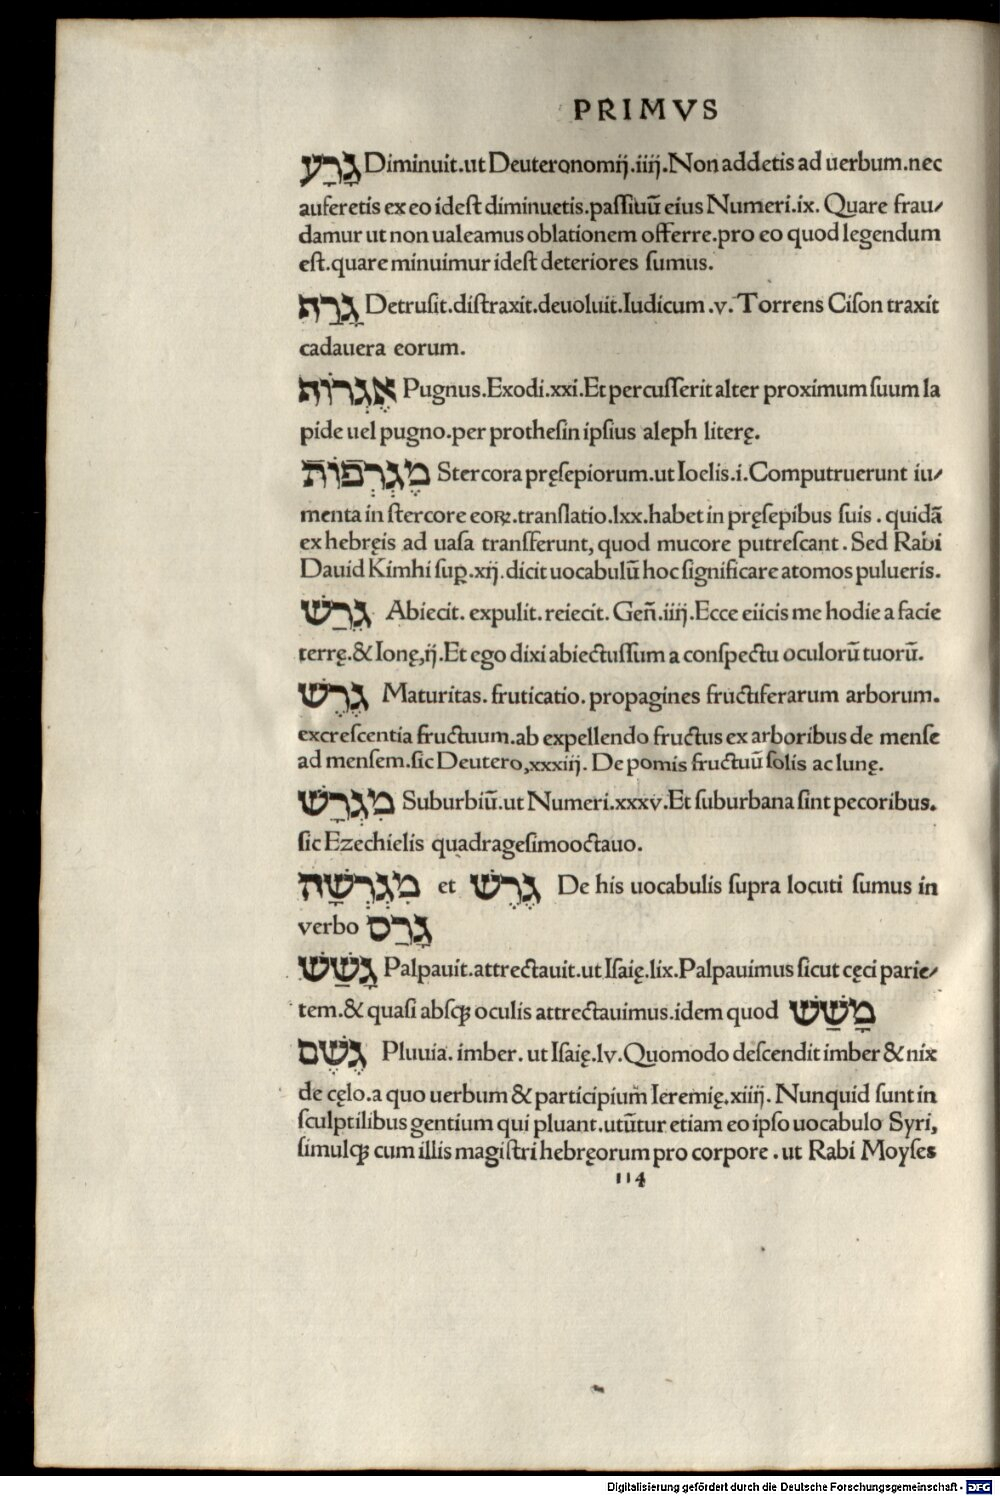 PRIMVS
גָּרַע Diminuit.ut Deuteronomij.iiij.Non addetis ad uerbum.nec
auferetis ex eo idest diminuetis.passiuū eius Numeri.ix. Quare frau/
damur ut non ualeamus oblationem offerre.pro eo quod legendum
est.quare minuimur idest deteriores sumus.
גָּרַח Detrusit.distraxit.deuoluit.Iudicum .v. Torrens Cison traxit
cadauera eorum.
אֶגְרוֹת Pugnus.Exodi.xxi.Et percusserit alter proximum suum la
pide uel pugno.per prothesin ipsius aleph literę.
מֶגְרְפוֹת Stercora pręsepiorum.ut Ioelis.i.Computruerunt iu/
menta in stercore eoꝝ.translatio.lxx.habet in pręsepibus suis . quidā
ex hebręis ad uasa transferunt, quod mucore putrescant . Sed Rabi
Dauid Kimhi suꝑ.xij.dicit uocabulū hoc significare atomos pulueris.
גֶּרַשׁ Abiecit. expulit. reiecit. Geñ.iiij.Ecce eiicis me hodie a facie
terrę.& Ionę,ij.Et ego dixi abiectussum a conspectu oculorū tuorū.
גֶּרֶשׁ Maturitas. fruticatio. propagines fructiferarum arborum.
excrescentia fructuum.ab expellendo fructus ex arboribus de mense
ad mensem.sic Deutero,xxxiij. De pomis fructuū solis ac lunę.
מִגְרָשׁ Suburbiū.ut Numeri.xxxv.Et suburbana sint pecoribus.
sic Ezechielis quadragesimooctauo.
מִגְרְשָׁה et גֶּרֶשׁ De his uocabulis supra locuti sumus in
verbo גָּרַס
גָּשַׁשׁ Palpauit.attrectauit.ut Isaię.lix.Palpauimus sicut cęci parie/
tem.& quasi absꝗ oculis attrectauimus.idem quod מָשַׁשׁ
גֶּשֶׁם Pluuia. imber. ut Isaię.lv.Quomodo descendit imber & nix
de cęlo.a quo uerbum & participium Ieremię.xiiij. Nunquid sunt in
sculptilibus gentium qui pluant.utūtur etiam eo ipso uocabulo Syri,
simulꝗ cum illis magistri hebręorum pro corpore . ut Rabi Moyses
114
Digitalisierung gefördert durch die Deutsche Forschungsgemeinschaft - DFG